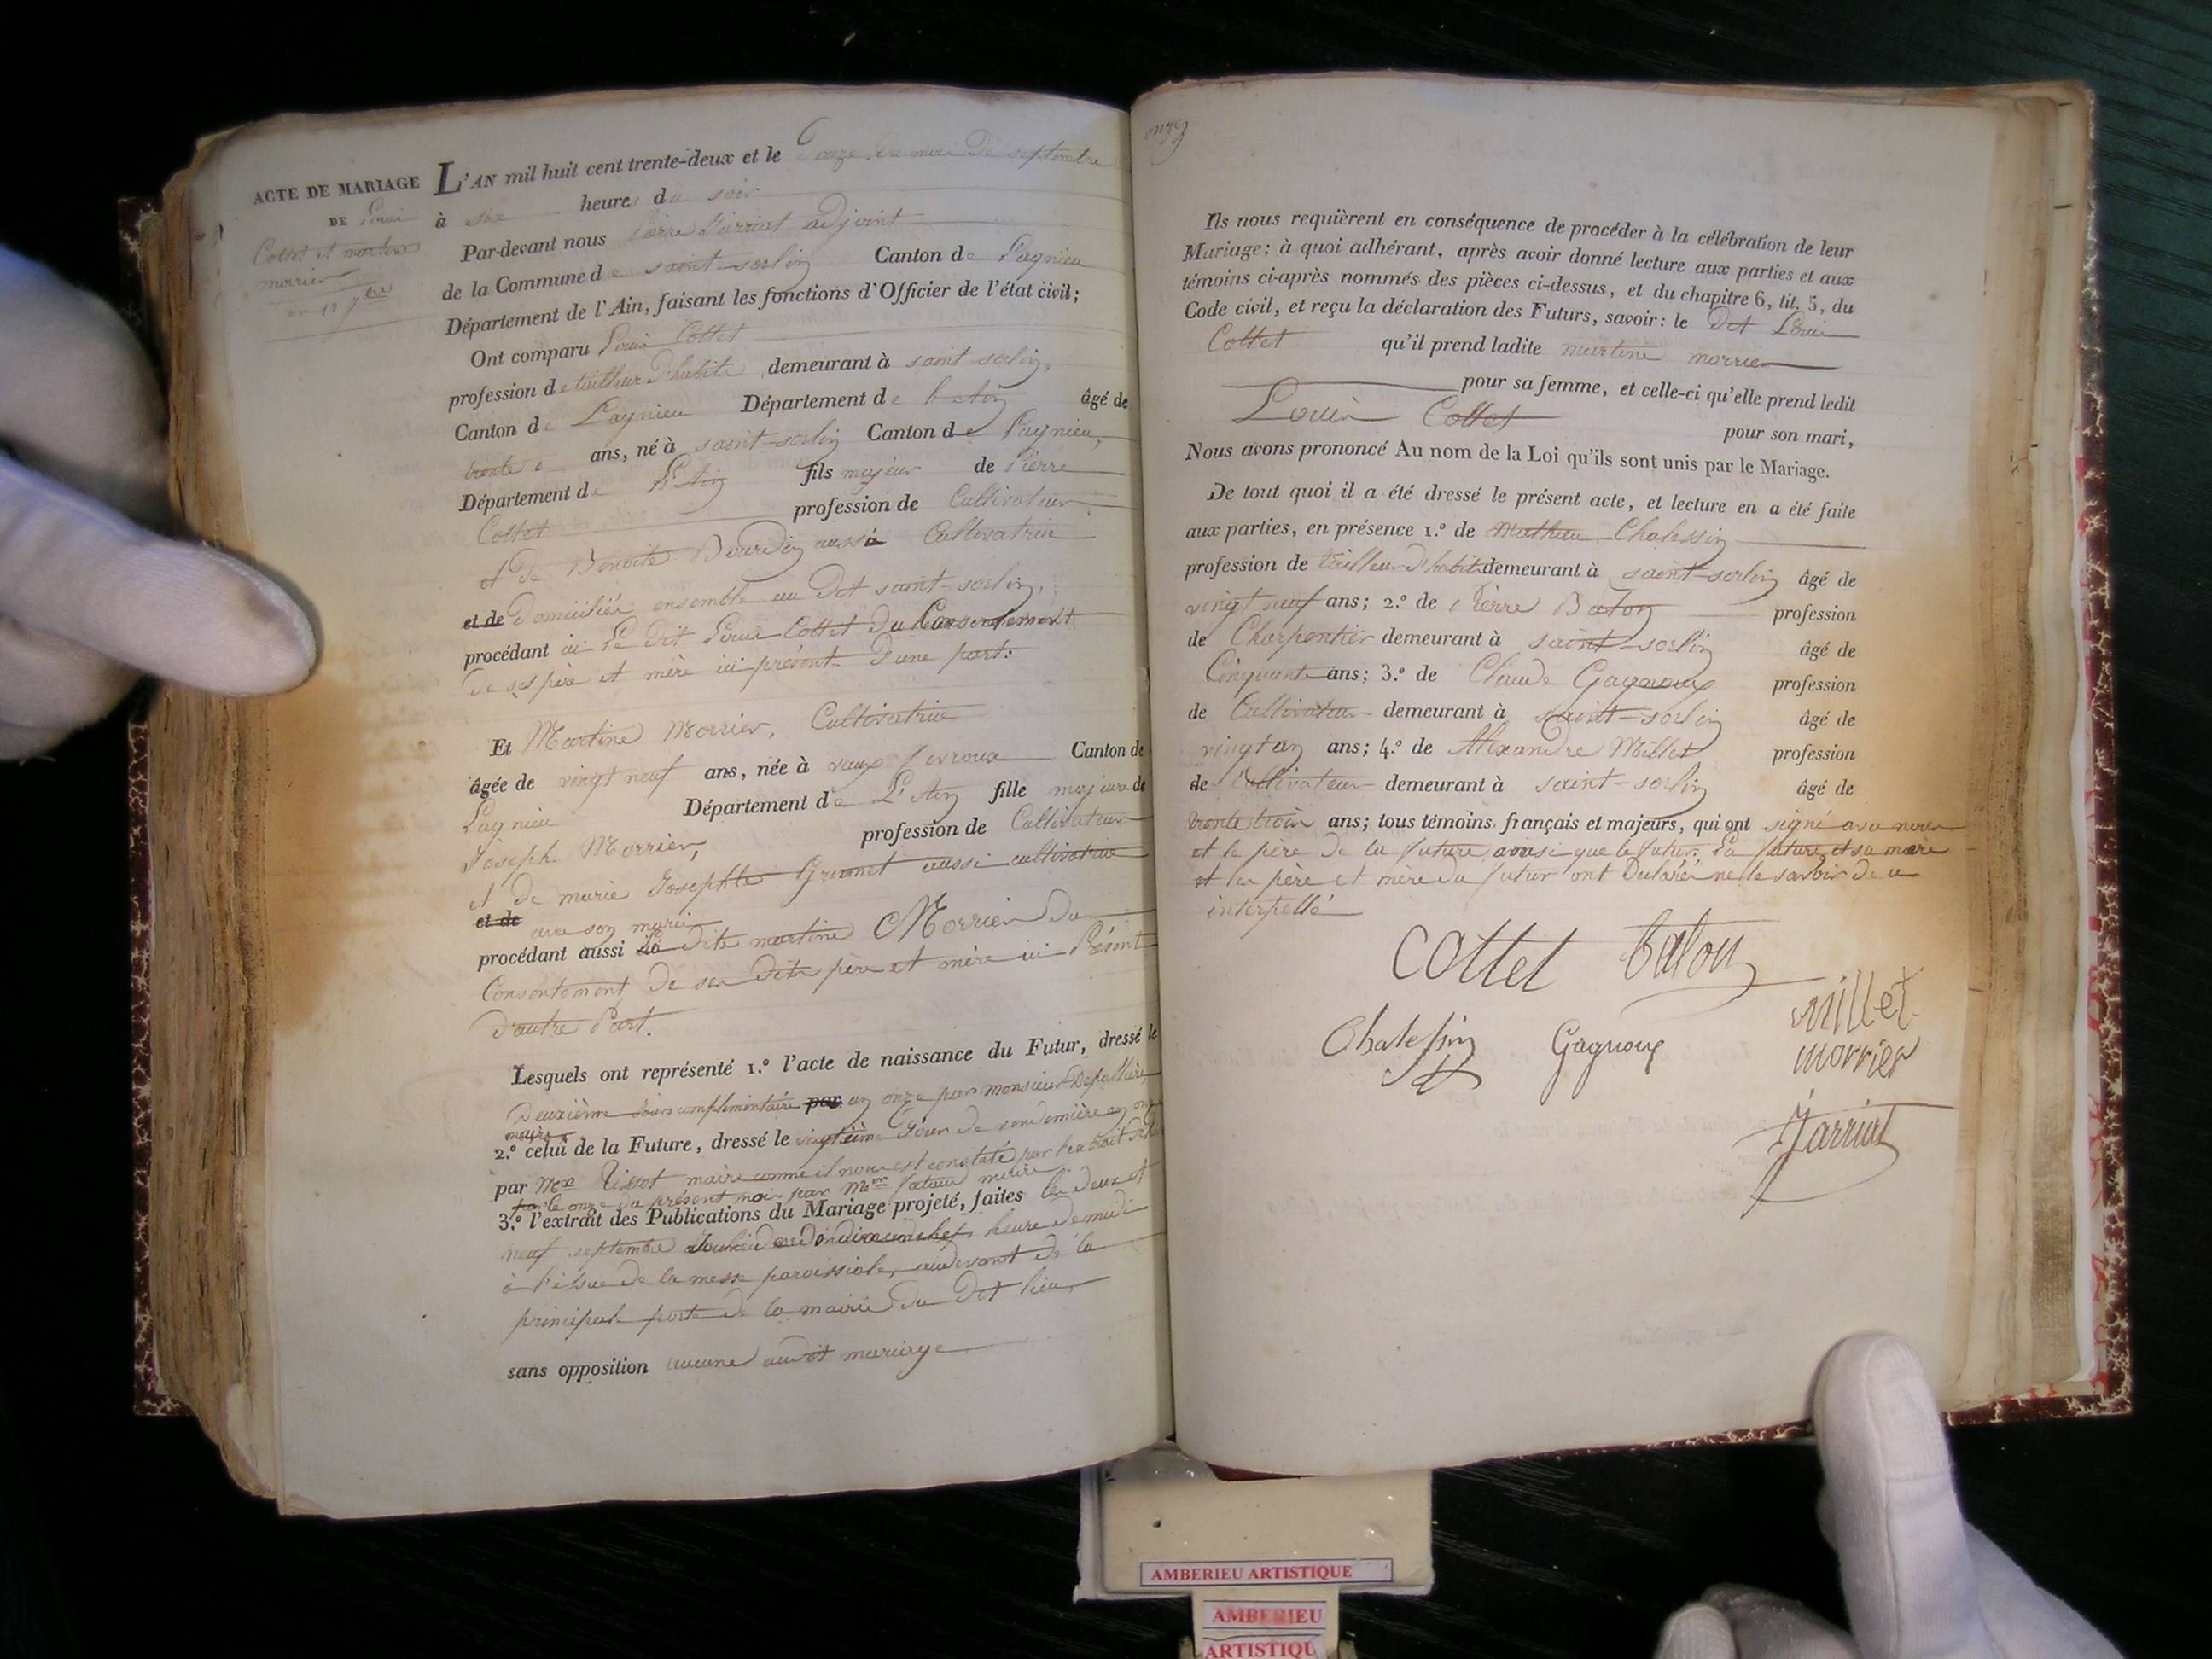 ACTE DE MARIAGE
DE Louis
Cottet et martine
morrier
L'AN mil huit cent trente-deux et le Douze du mois de septembre
à six heures du soir
Par-devant nous Pierre Jarriat adjoint
de la Commune de saint-sorlin Canton de Lagnieu
Département de l'Ain, faisant les fonctions d'Officier de l'état civil;
Ont comparu Louis Cottet
profession de tailleur d'habits demeurant à saint sorlin,
Canton de Lagnieu Département de l'Ain âgé de
trente ans, né à saint-sorlin Canton de Lagnieu,
Département de L'Ain fils majeur de Pierre
Cottet profession de Cultivateur
et de Benoite Bourdin aussi Cultivatrice
et de Domiciliés ensemble au Dit saint-sorlin,
procédant ici Le Dit Louis Cottet du Consentement
de ses père et mère ici présent D'une part:
Et Martine Morrier, Cultivatrice
âgée de vingt neuf ans, née à vaux fevroux Canton de
Lagnieu Département de L'Ain fille majeure de
Joseph Morrier, profession de Cultivateur
et de marie Josephte Grumet aussi cultivatrice
et de avec son mari
procédant aussi La dite martine Morrier du
Consentement de ses Dits père et mère ici Présent
D'autre Part.
Lesquels ont représenté 1.º l'acte de naissance du Futur, dressé le
Deuxième Jour complémentaire par an onze par monsieur Depallière
maire
2.º celui de la Future, dressé le vingtième Jour de vendemière an onze
par Mr Tissot maire comme il nous est constaté par l'extrait
par le onze du présent mois par Mr maire
3.º l'extrait des Publications du Mariage projeté, faites les deux et
neuf septembre dimanches heure de midi
à l'issue de la messe paroissiale, audevant de la
principale porte de la mairie du Dit lieu
sans opposition aucune audit mariage
onze
Ils nous requièrent en conséquence de procéder à la célébration de leur
Mariage: à quoi adhérant, après avoir donné lecture aux parties et aux
témoins ci-après nommés des pièces ci-dessus, et du chapitre 6, tit. 5, du
Code civil, et reçu la déclaration des Futurs, savoir: le Dit Louis
Cottet qu'il prend ladite martine morrier
pour sa femme, et celle-ci qu'elle prend ledit
Louis Cottet pour son mari,
Nous avons prononcé Au nom de la Loi qu'ils sont unis par le Mariage.
De tout quoi il a été dressé le présent acte, et lecture en a été faite
aux parties, en présence 1.º de Mathieu Chalessin
profession de tailleur d'habits demeurant à saint-sorlin âgé de
vingt neuf ans; 2.º de Pierre Baton profession
de Charpentier demeurant à saint-sorlin âgé de
Cinquante ans; 3.º de Claude Gagnoux profession
de Cultivateur demeurant à saint-sorlin âgé de
vingt un ans; 4.º de Alexandre Millet profession
de Cultivateur demeurant à saint-sorlin âgé de
trente trois ans; tous témoins français et majeurs, qui ont signé avec nous
et le père de la future ainsi que le futur. La future et sa mère
et les père et mère du futur ont Déclaré ne le savoir de ce
interpellé
Cottet Baton
millet
Chalessin Gagnoux
morrier
Jarriat
AMBERIEU ARTISTIQUE
AMBERIEU
ARTISTIQU